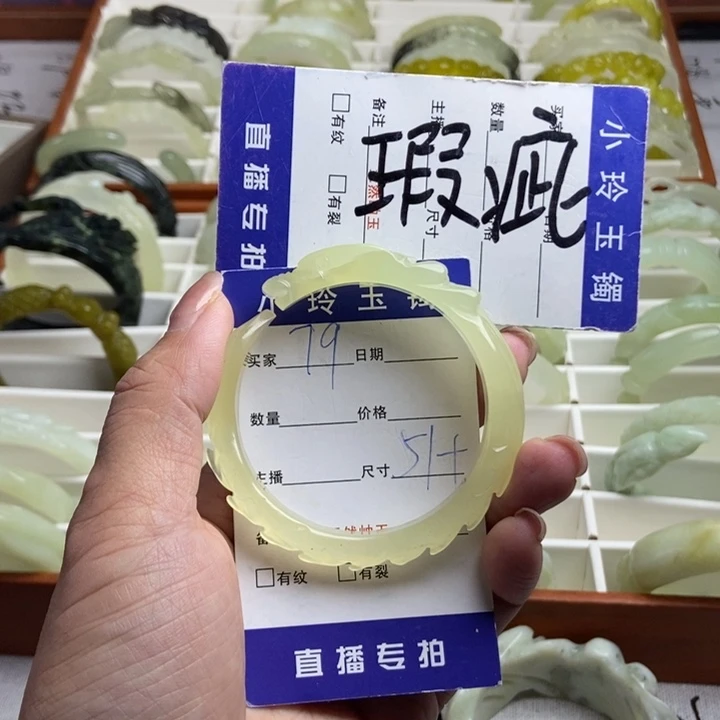 小玲玉镯
数量
主播
备注
尺寸
有纹
有裂
瑕疵
直播专拍
玲玉镯
买家 79 日期
数量 价格
主播 尺寸 51+
有纹 有裂
直播专拍